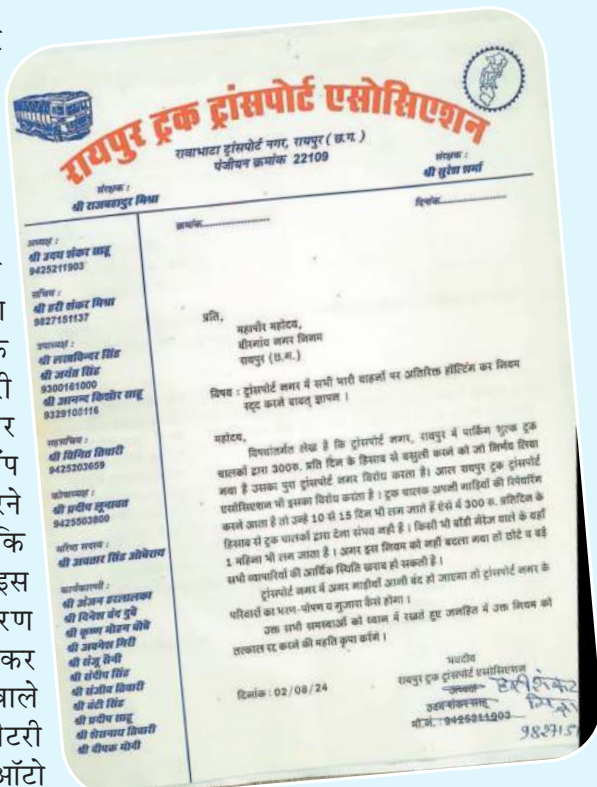 र
रायपुर ट्रक ट्रांसपोर्ट एसोसिएशन
रावाभाटा ट्रांसपोर्ट नगर, रायपुर (छ.ग.)
पंजीयन क्रमांक 22109
संरक्षक :
श्री राजबहादुर मिश्रा
संरक्षक :
श्री सुरेश शर्मा
क्रमांक
दिनांक
अध्यक्ष :
श्री उदय शंकर साहू
9425211903
सचिव :
श्री हरी शंकर मिश्रा
9827151137
उपाध्यक्ष :
श्री लखविन्दर सिंह
श्री जयंत सिंह
9300161000
श्री आनन्द किशोर साहू
9329105116
सहसचिव :
श्री विनित तिवारी
9425203659
कोषाध्यक्ष :
श्री प्रदीप लूनावत
9425503800
वरिष्ठ सदस्य :
श्री अवतार सिंह ओबेराय
कार्यकारणी :
श्री अंजन हरलालका
श्री दिनेश चंद दुबे
श्री कृष्ण मोहन चौबे
श्री अवधेश गिरी
श्री संजू सैनी
श्री संदीप सिंह
श्री संजीव तिवारी
श्री बंटी सिंह
श्री प्रदीप साहू
श्री शेषनाथ तिवारी
श्री दीपक गोगी
प्रति,
महापौर महोदय,
बीरगांव नगर निगम
रायपुर (छ.ग.)
विषय : ट्रांसपोर्ट नगर में सभी भारी वाहनों पर अतिरिक्त हॉल्टिंग कर नियम
रद्द करने बावत् ज्ञापन ।
महोदय,
विषयांतर्गत लेख है कि ट्रांसपोर्ट नगर, रायपुर में पार्किंग शुल्क ट्रक
चालकों द्वारा 300रु. प्रति दिन के हिसाब से वसुली करने का जो निर्णय लिया
गया है उसका पुरा ट्रांसपोर्ट नगर विरोध करता है। आल रायपुर ट्रक ट्रांसपोर्ट
एसोसिएशन भी इसका विरोध करता है । ट्रक चालक अपनी गाड़ियों की रिपेयरिंग
करने आता है तो उन्हे 10 से 15 दिन भी लग जाते हैं ऐसे में 300 रु. प्रतिदिन के
हिसाब से ट्रक चालकों द्वारा देना संभव नही है । किसी भी बॉडी गैरेज वाले के यहाँ
1 महिना भी लग जाता है । अगर इस नियम को नही बदला गया तो छोटे व बड़े
सभी व्यापारियों की आर्थिक स्थिति खराब हो सकती है ।
ट्रांसपोर्ट नगर में अगर गाड़ीयाँ आनी बंद हो जाएगा तो ट्रांसपोर्ट नगर के
परिवारों का भरण-पोषण व गुजारा कैसे होगा ।
उक्त सभी समस्याओं को ध्यान में रखते हुए जनहित में उक्त नियम को
तत्काल रद्द करने की महति कृपा करेंगे ।
भवदीय
रायपुर ट्रक ट्रांसपोर्ट एसोसिएशन
अध्यक्ष हरीशंकर
उदय शंकर साहू मिश्रा
मो.नं. : 9425211903
982715
दिनांक : 02/08/24
ा
क
री
र
ंप
रने
कि
इस
रण
कर
वाले
टरी
ऑटो